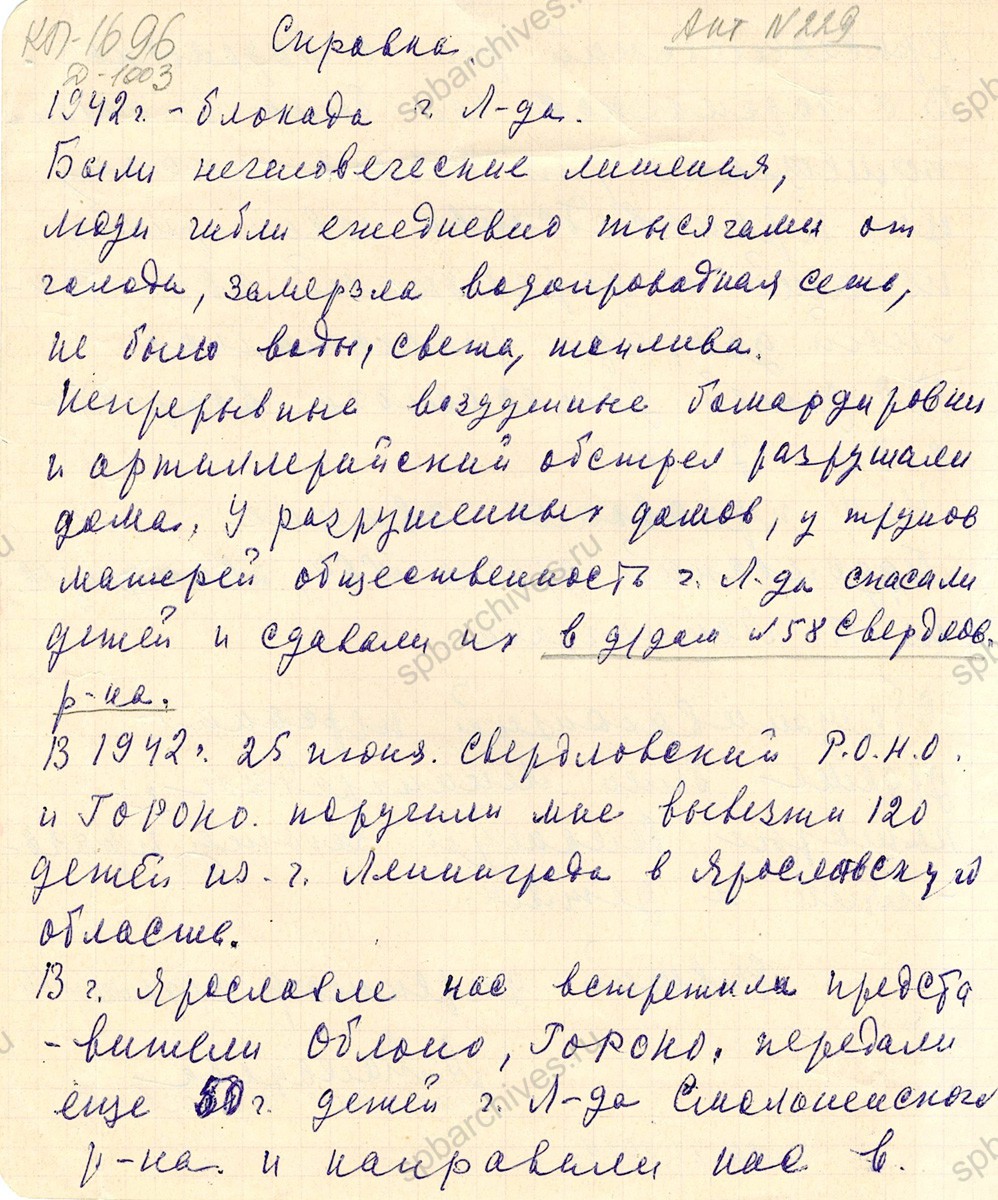 КП-1696
Д-1003
Акт N 229
Справка.
1942 г. - блокада г. Л-да.
Были нечеловеческие лишения,
люди гибли ежедневно тысячами от
голода, замерзла водопроводная сеть,
не было воды, света, топлива.
Непрерывные воздушные бомбардировки
и артиллерийский обстрел разрушали
дома. У разрушенных домов, у трупов
матерей общественность г. Л-да спасали
детей и сдавали их в д/дом №58 Свердлов.
р-на.
В 1942 г. 25 июня. Свердловский Р.О.Н.О.
и ГОРОНО. поручили мне вывезти 120
детей из г. Ленинграда в Ярославскую
область.
В г. Ярославле нас встретили предста
-вители Облоно, ГОРОНО. передали
еще 50 г. детей г. Л-да Смольненского
р-на. и направили нас в.
spbarchives.ru